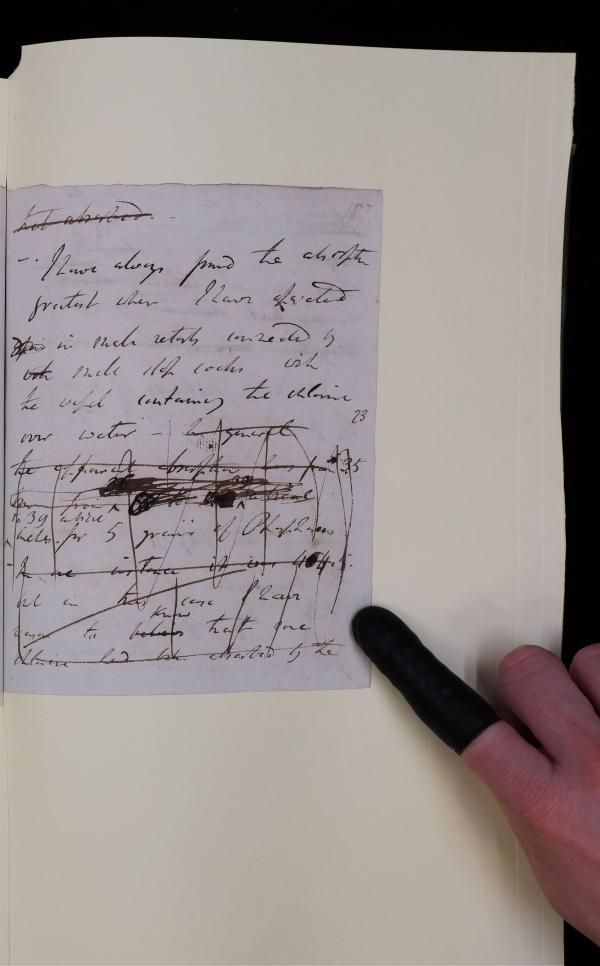 not absorbed. -
187
- . I have always found the absorption
greatest when I have operated
in small retorts connected by
with small stop cocks with
the vessel containing the chlorine
over water - In general
23
the apparent absorption has from 35
from
to 39 cubical
inches for 5 grains of Phosphorus
- In one instance it was 45.
but in this case I have
know
reason to believe that some
chlorine had been absorbed by the